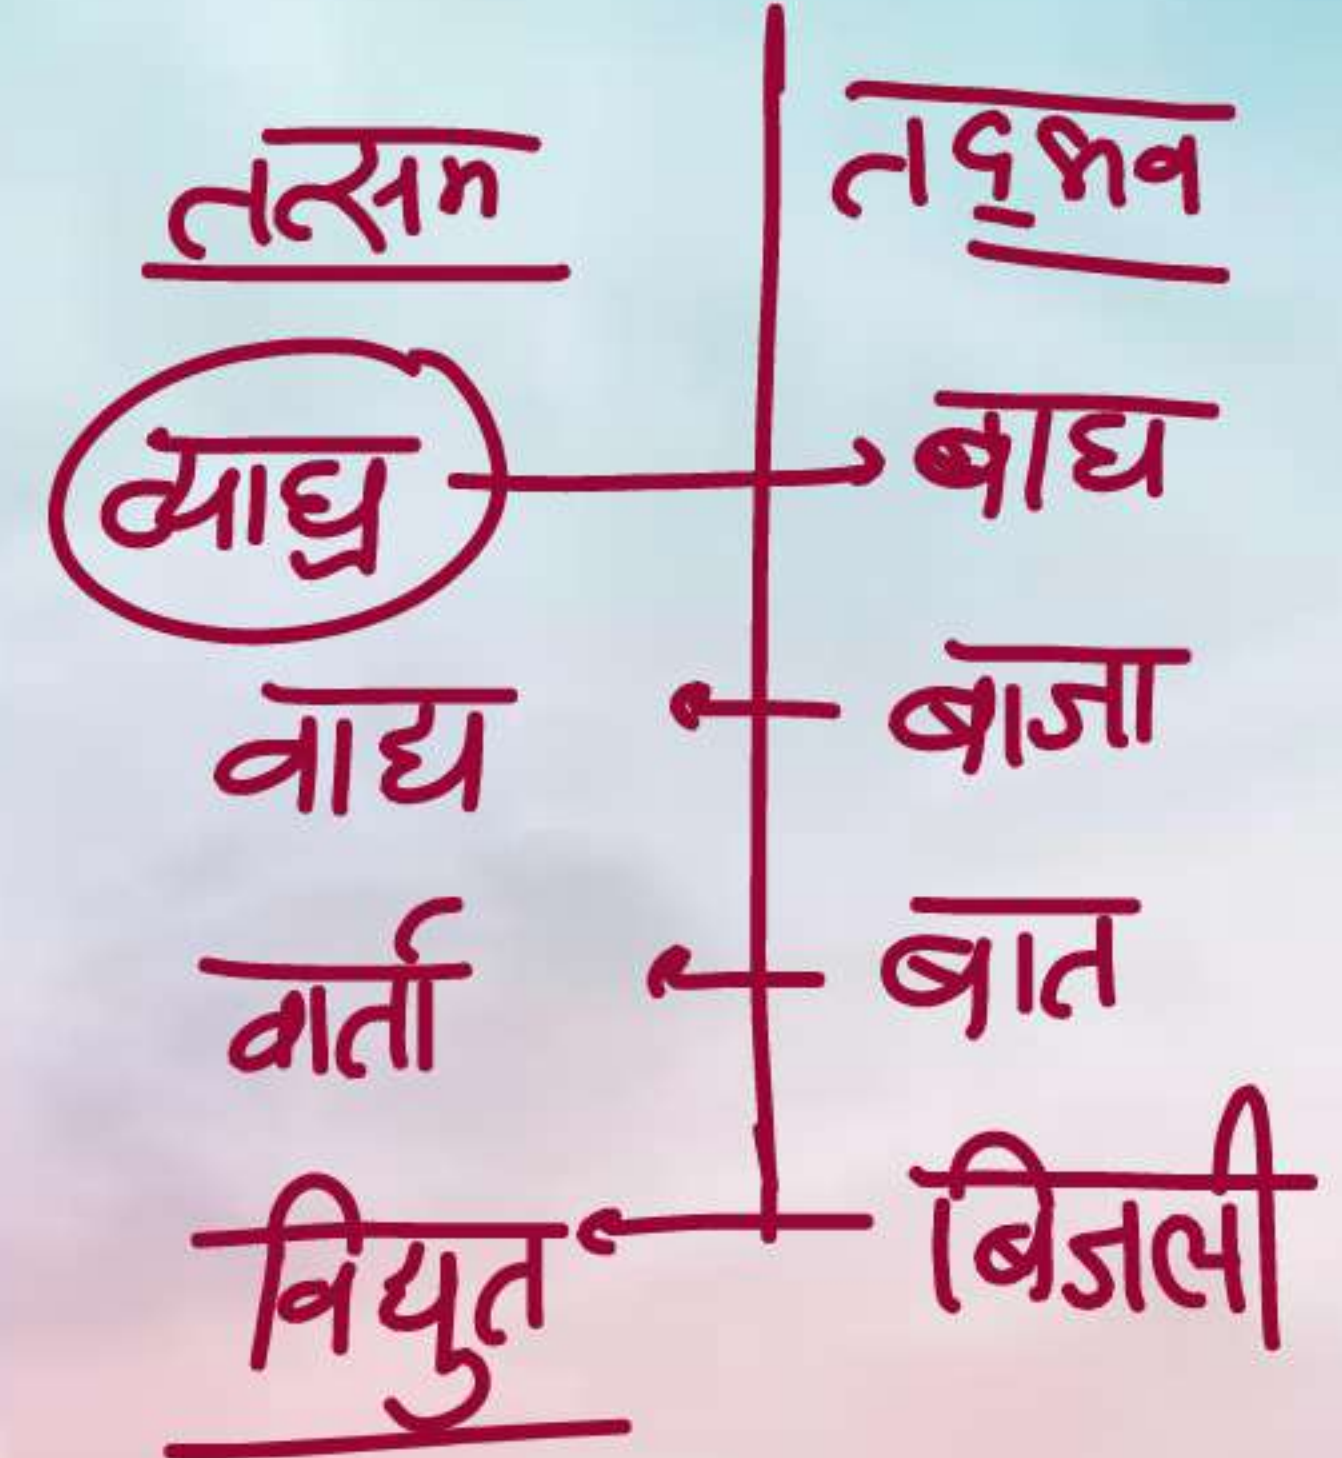 तत्सम तद्भव
व्याघ्र बाघ
वाद्य बाजा
वार्ता बात
विद्युत बिजली